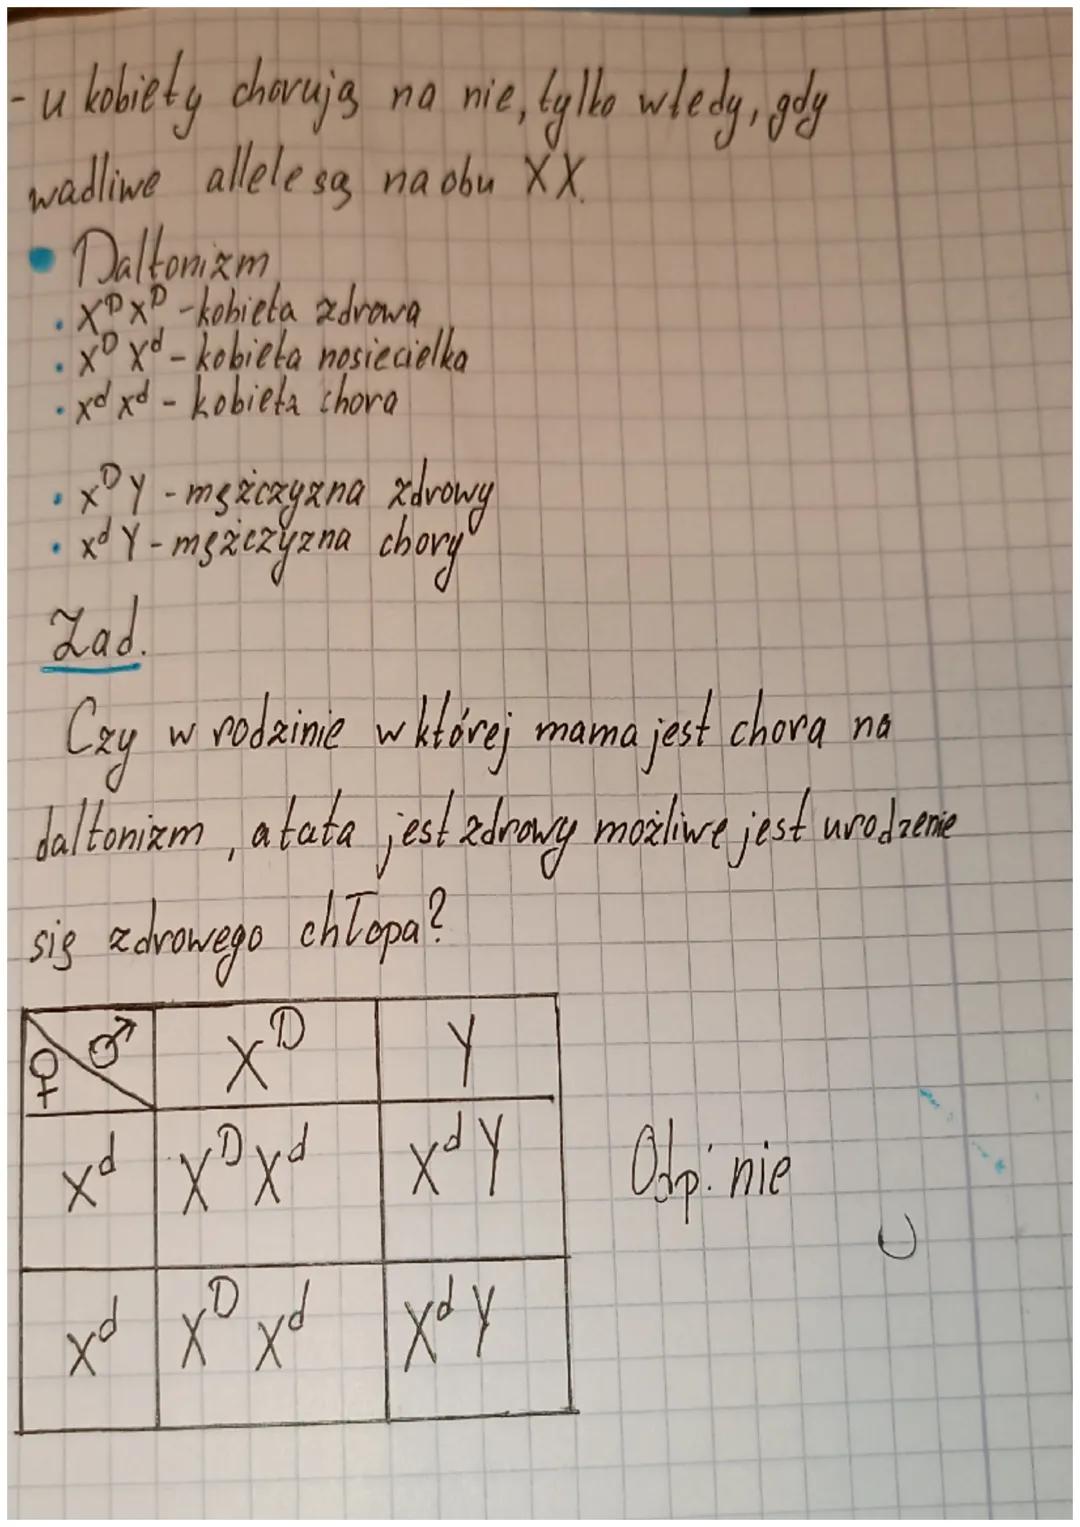 - u kobiety chorują na nie, tylko wtedy, gdy
wadliwe allele są na obu XX.
• Daltonizm
• X^D X^D - kobieta zdrowa
• X^D X^d - kobieta nosicielka
• X^d X^d - kobieta chora
• X^D Y - mężczyzna zdrowy
• X^d Y - mężczyzna chory
Zad.
Czy w rodzinie w której mama jest chora na
daltonizm, a tata jest zdrowy możliwe jest urodzenie
się zdrowego chłopa?
♀ ♂ X^D Y
X^d X^D X^d X^d Y
Odp: nie
X^d X^D X^d X^d Y